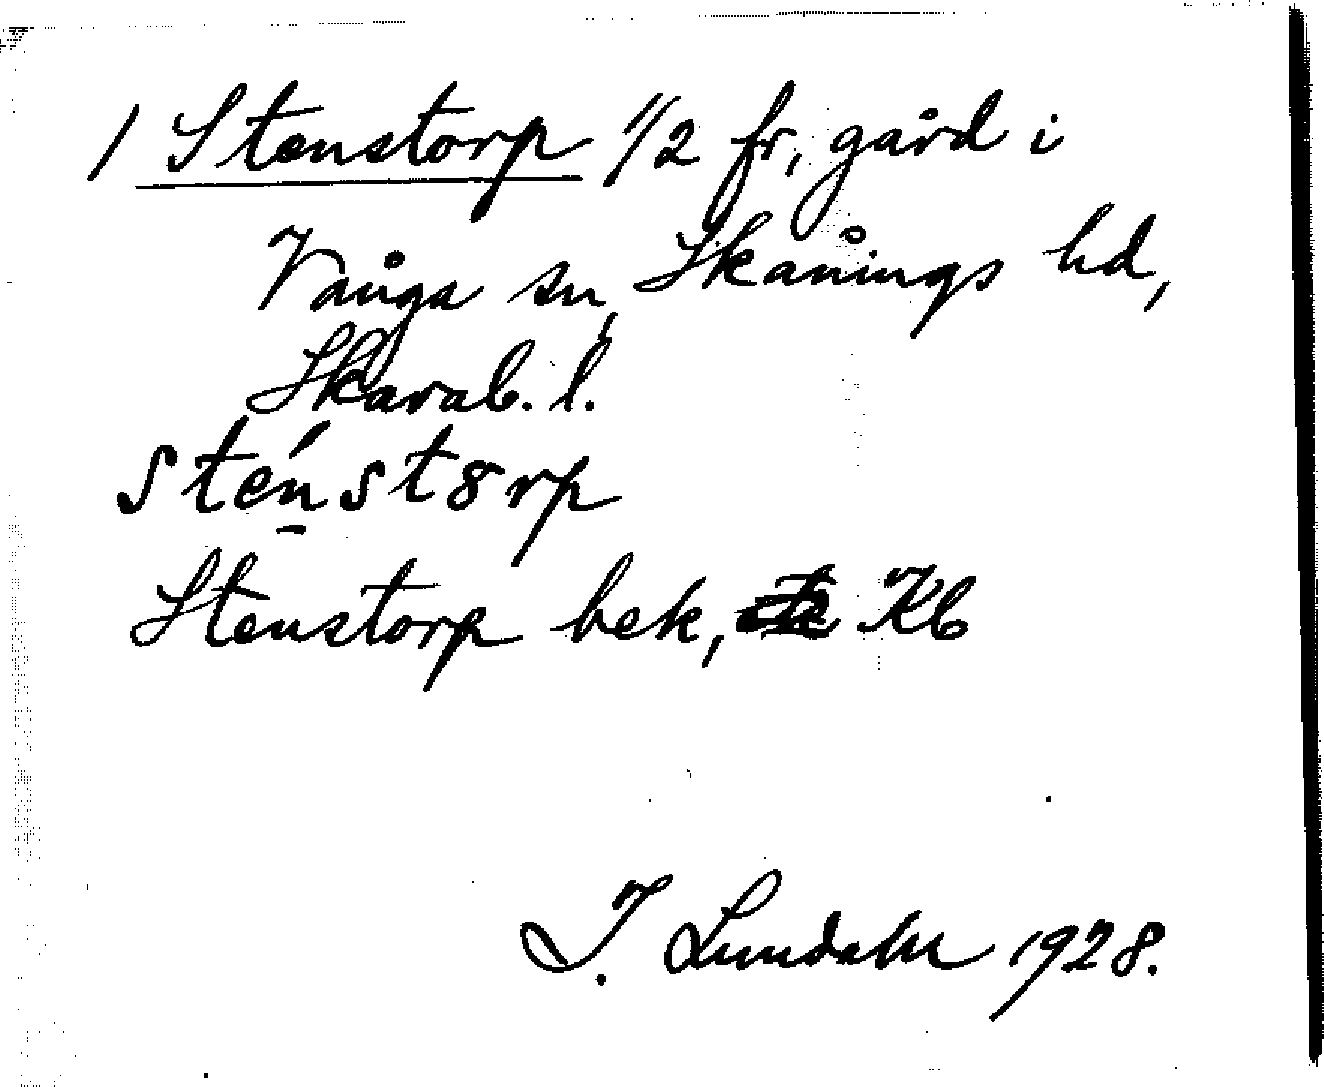 1 Stenstorp 1/2 fr, gård i
Vånga sn, Skånings hd,
Skarab. l.
sté̱nst8rp
Stenstorp bek, Kb
I. Lundahl 1928.